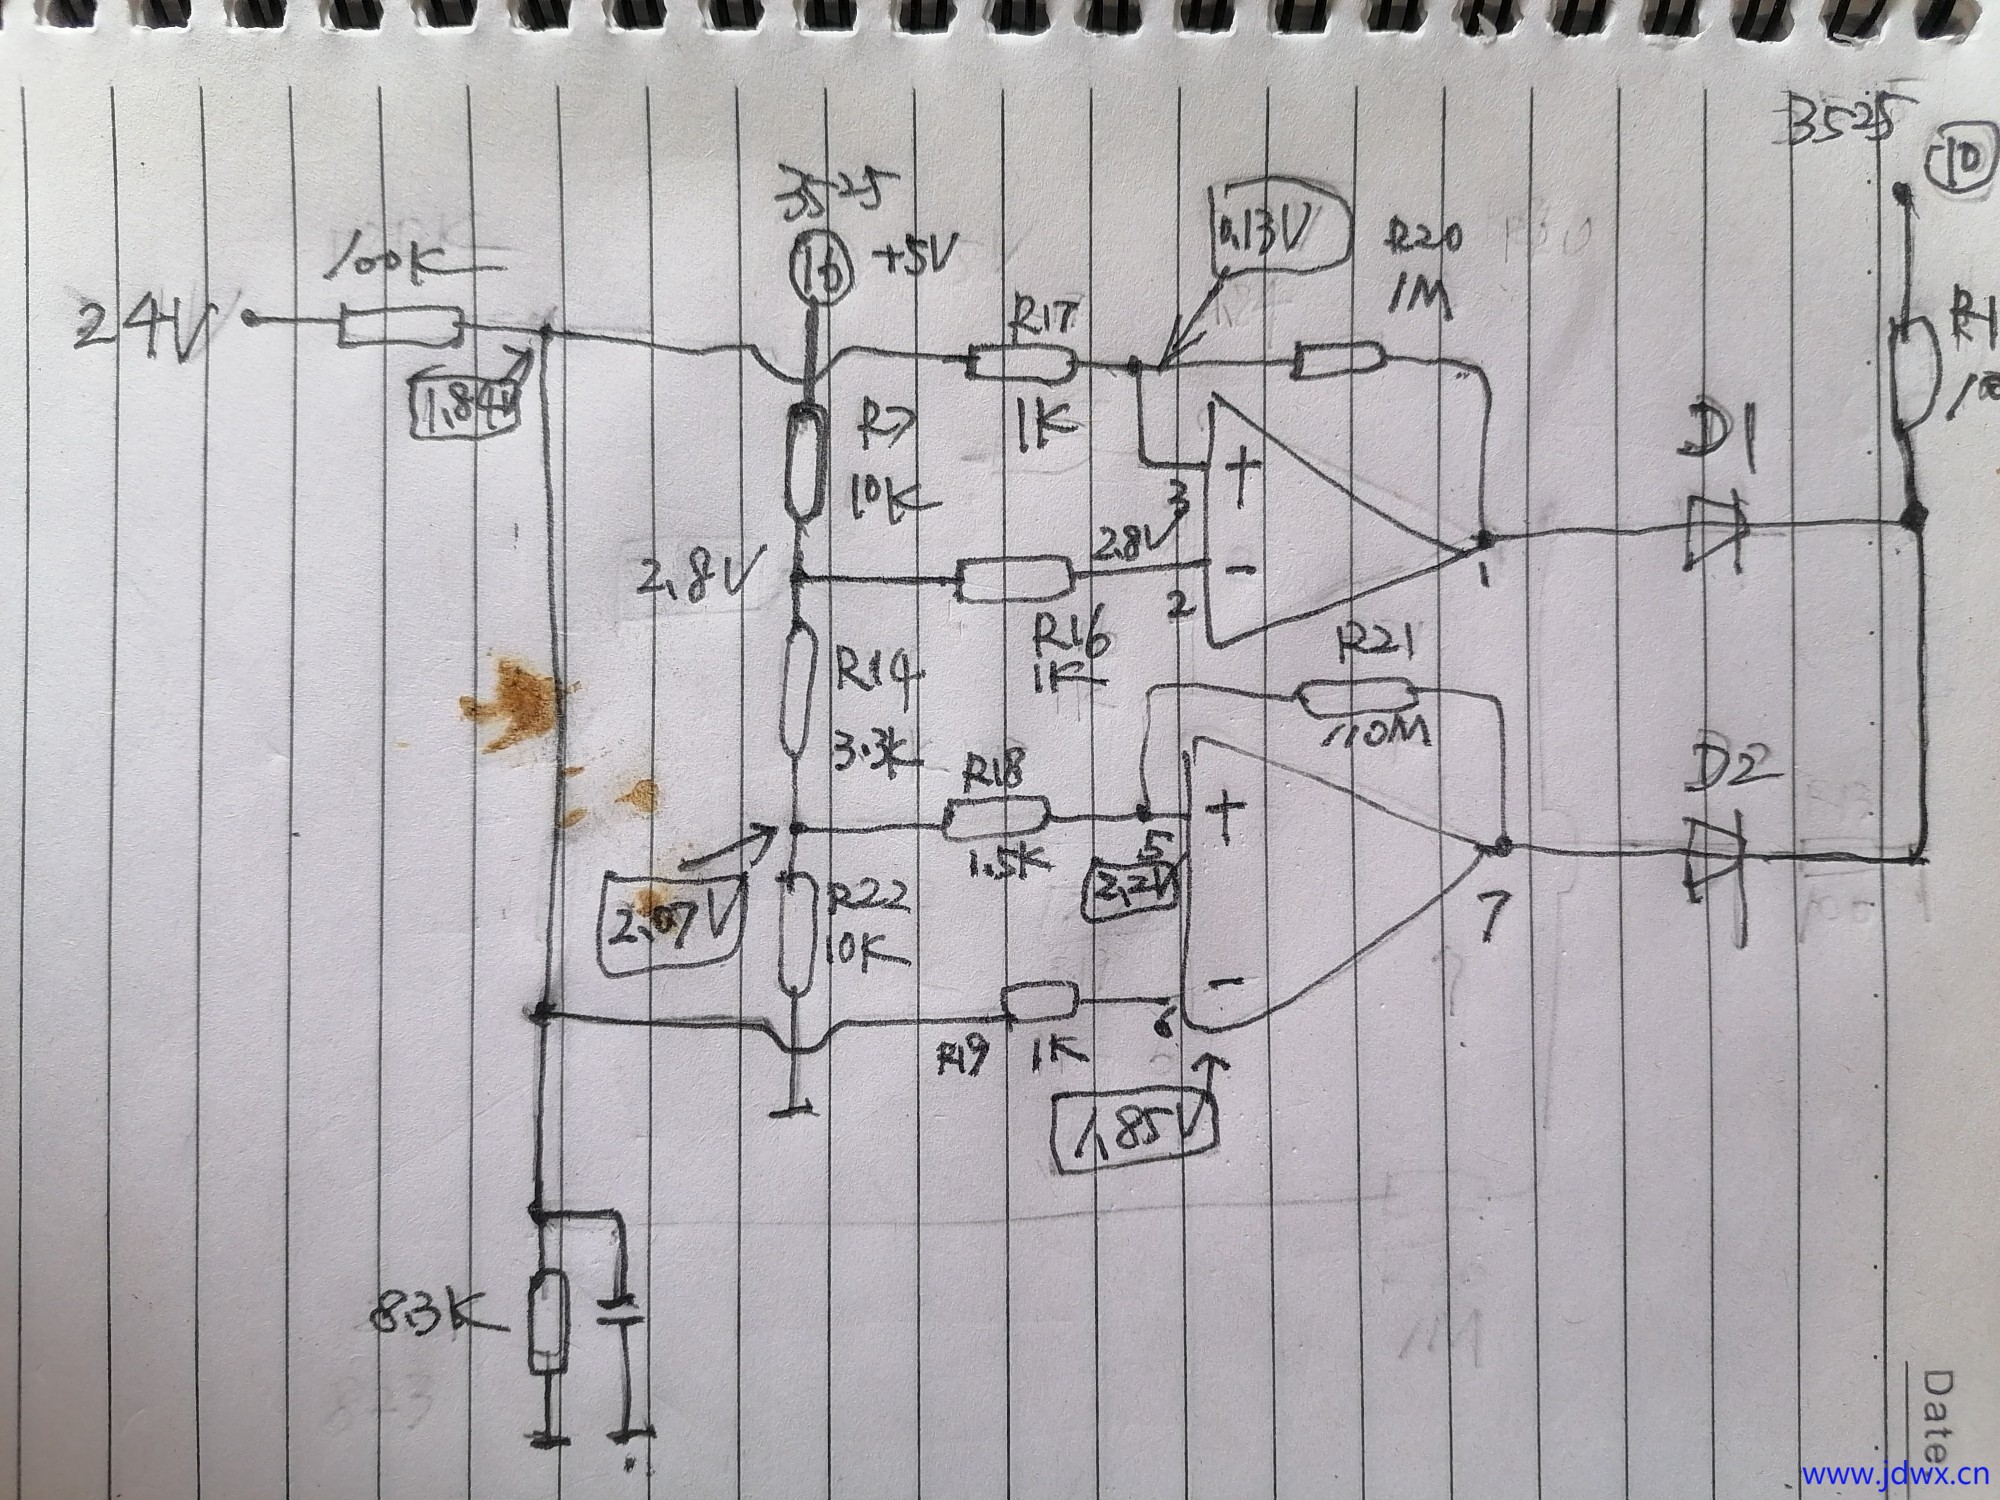 3525
10
3525
16 +5V
0.13V
R20
1M
100K
24V
R17
1K
1.84V
R7
10K
D1
+
3
2.8V
2.8V
-
2
1
R16
1K
R14
3.3K
R21
10M
R18
1.5K
D2
+
5
2.2V
2.07V
R22
10K
7
-
6
R19
1K
1.85V
8.3K
Date
www.jdwx.cn